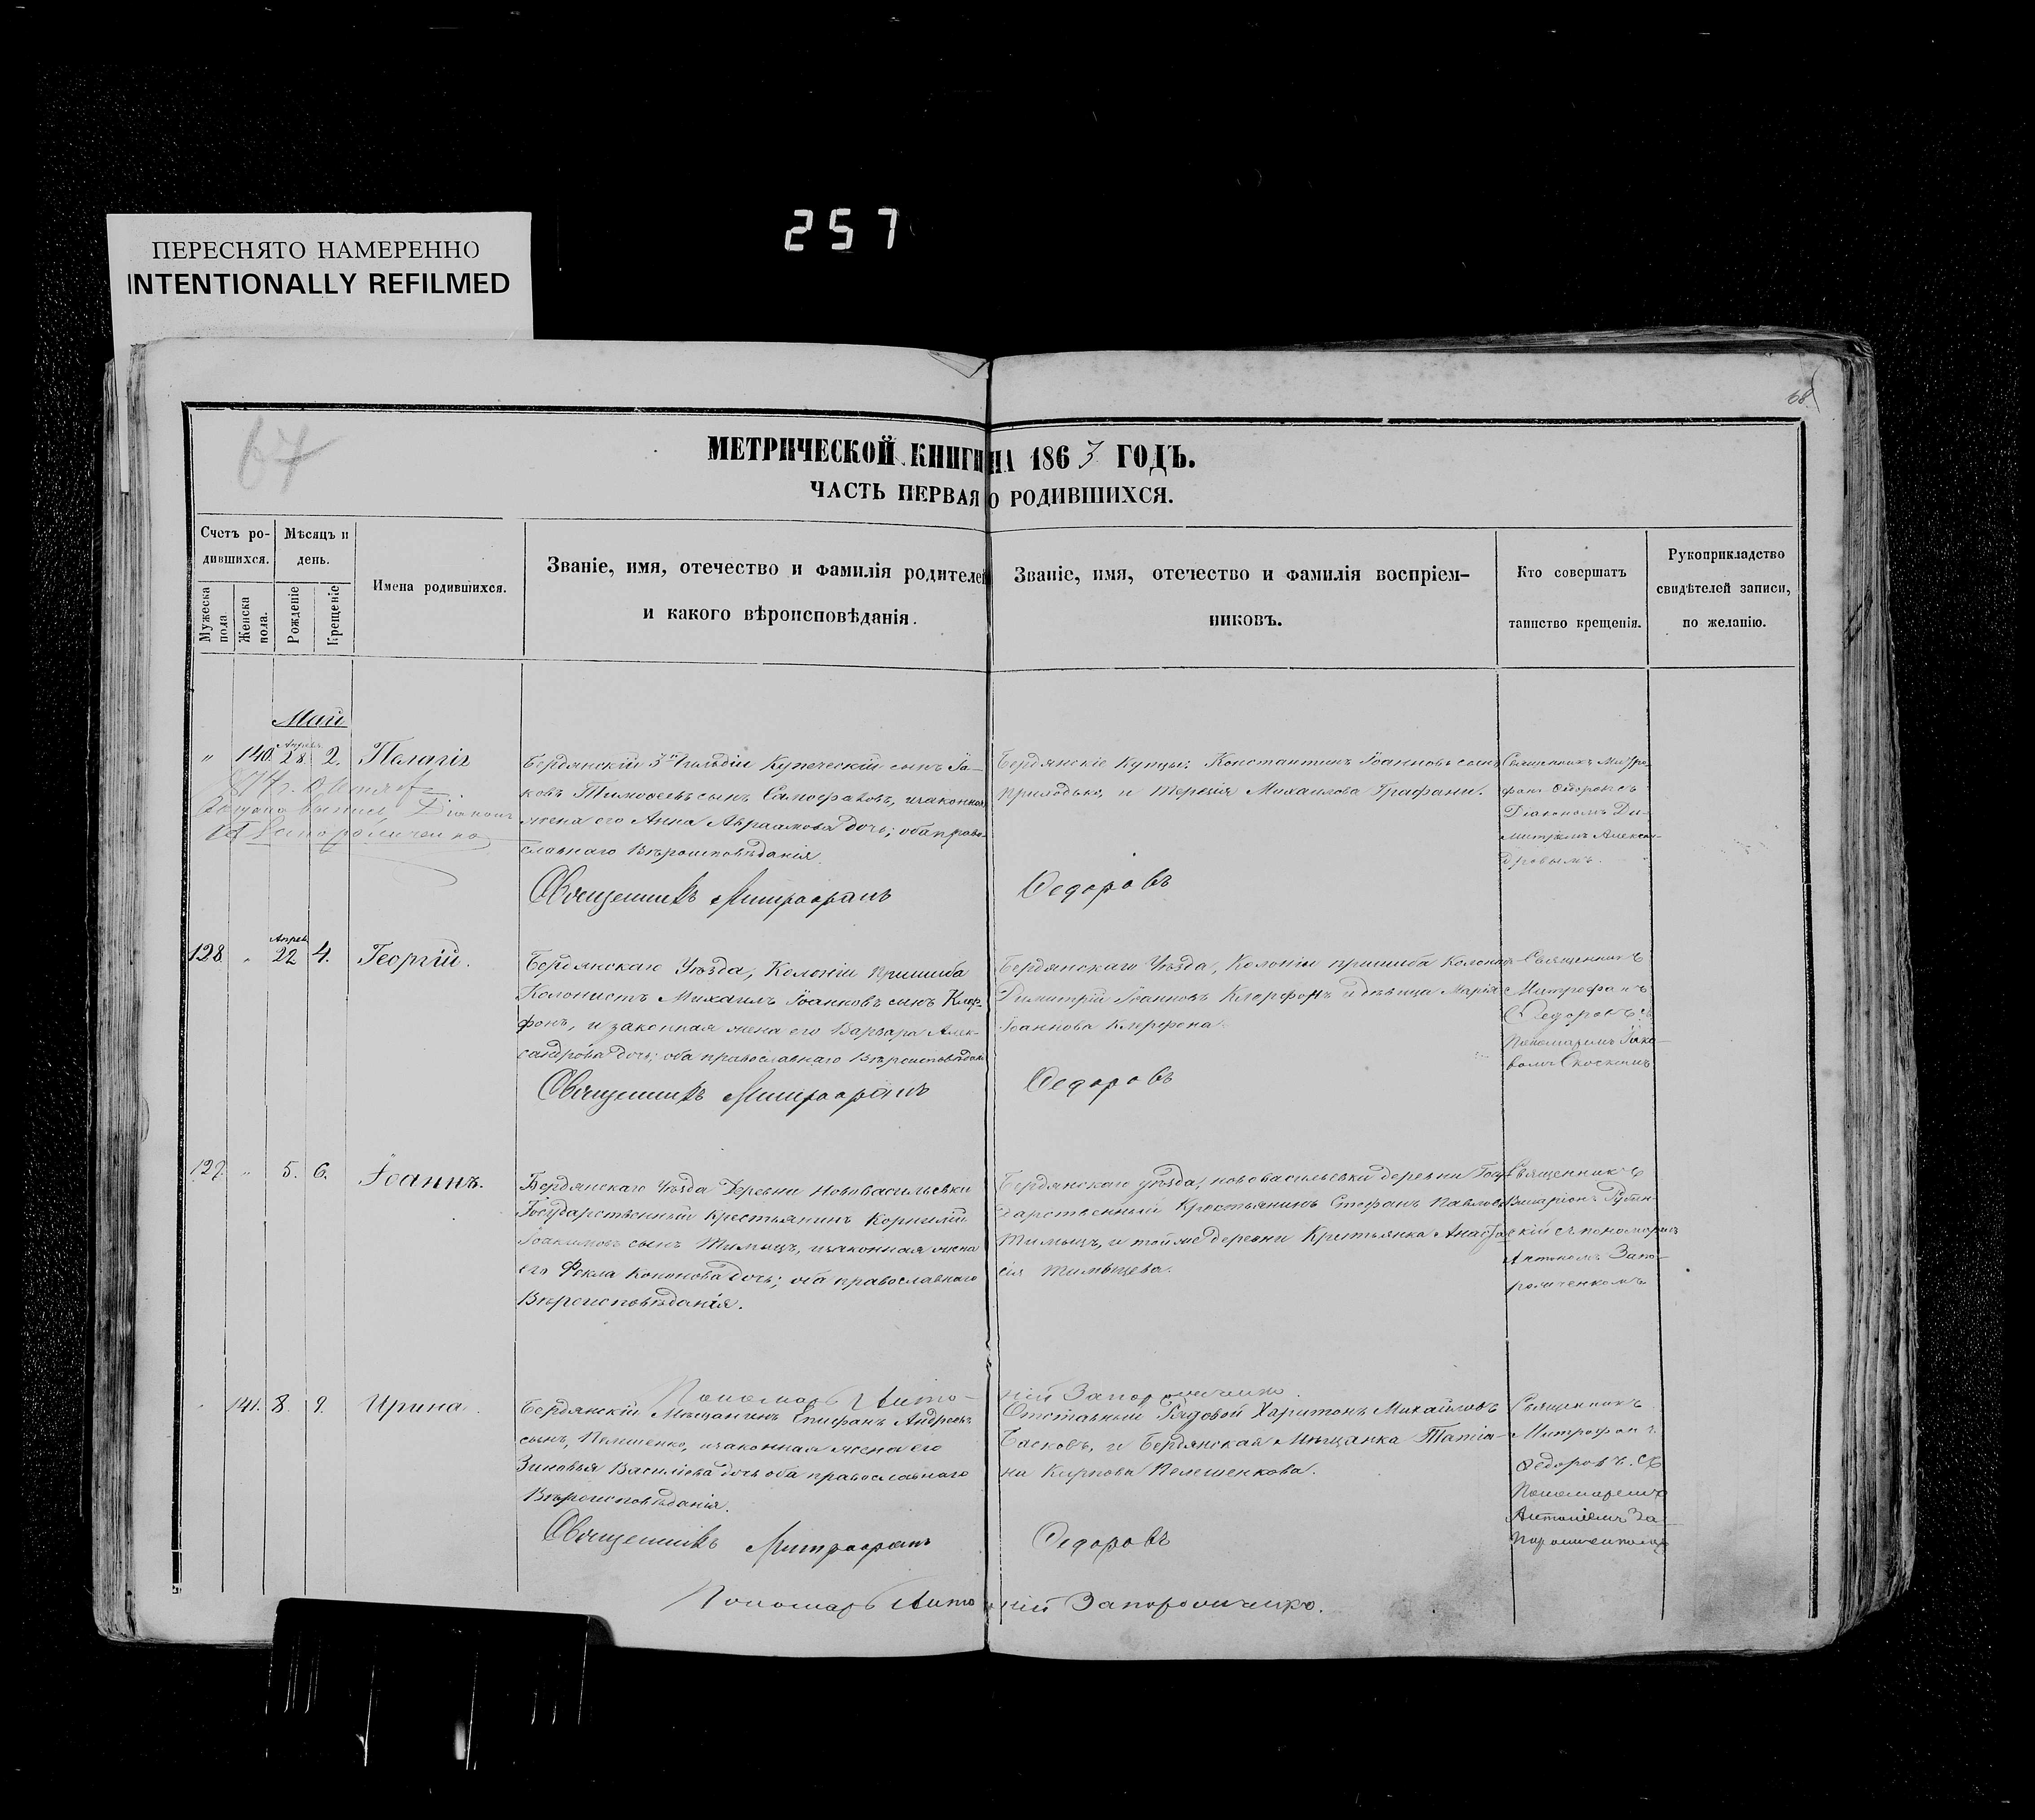 257
ПЕРЕСНЯТО НАМЕРЕННО
INTENTIONALLY REFILMED
68
67
МЕТРИЧЕСКОЙ КНИГИ НА 1863 ГОДЪ.
ЧАСТЬ ПЕРВАЯ О РОДИВШИХСЯ.
Счетъ ро-
дившихся.
Мужеска пола
Женска пола.
Мѣсяцъ и
день.
Рожденіе
Крещеніе
Имена родившихся.
Званіе, имя, отечество и фамилія родителей
и какого вѣроисповѣданія.
Званіе, имя, отечество и фамилія воспріем-
никовъ.
Кто совершатъ
таинство крещенія.
Рукоприкладство
свидѣтелей записи,
по желанію.
Май
" 140. Апрел 28. 2. Пелагія
Бердянскій 3й Гильдіи Купеческій сынъ Іа-
ковъ Тимофеевъ сынъ, и законная
жена его Анна Авраамова дочь; оба право-
славнаго Вѣроисповѣданія.
Бердянскіе Купцы: Константинъ Іоанновъ сынъ
Приходько, и Терезія Михаилова Графани.
Священникъ Митро-
фанъ Федоровъ съ
Діакономъ Ди-
митріемъ Алексан-
дровымъ.
Священникъ Митрофанъ Федоровъ
128. " Апрел 22 4. Георгій.
Бердянскаго Уѣзда, Колоніи Пришиба
Колонистъ Михаилъ Іоанновъ сынъ Клер-
фонъ, и законная жена его Варвара Алек-
сандрова дочь; оба православнаго Вѣроисповѣдан
Бердянскаго Уѣзда, Колоніи Пришиба
Димитрій Іоанновъ Клерфонъ и дѣвица Марія
Іоаннова Клерфона.
Священникъ
Митрофанъ
Федоровъ съ
Пономаремъ Іако-
вомъ
Священникъ Митрофанъ Федоровъ
129. " 5. 6. Іоаннъ.
Бердянскаго Уѣзда Деревни Нововасильевки
Государственный Крестьянинъ Корнилій
Іоакимовъ сынъ Тимыцъ, и законная жена
его Фекла Кононова дочь; оба православнаго
Вѣроисповѣданія.
Бердянскаго уѣзда, нововасильевки деревни Госу-
дарственный Крестьянинъ Стефанъ Павловъ
Тимыцъ, и тойже деревни Крестьянка Анаста-
сія Тимыцева.
Священникъ
съ пономаремъ
Антономъ Запо-
рожченкомъ
Пономарь Антоній Запорожченко.
" 141. 8. 9. Ирина.
Бердянскій Мѣщанинъ Епифанъ Андреевъ
сынъ, Пелешенко, и законная жена его
Зиновья Василіева дочь оба православнаго
Вѣроисповѣданія.
Отставный Рядовой Харитонъ Михайловъ
Басковъ, и Бердянская Мѣщанка Татіа-
на Карпова Пелешенкова.
Священникъ
Митрофанъ
Федоровъ. съ
Пономаремъ
Антоніемъ За-
порожченкомъ
Священникъ Митрофанъ Федоровъ
Пономарь Антоній Запорожченко.